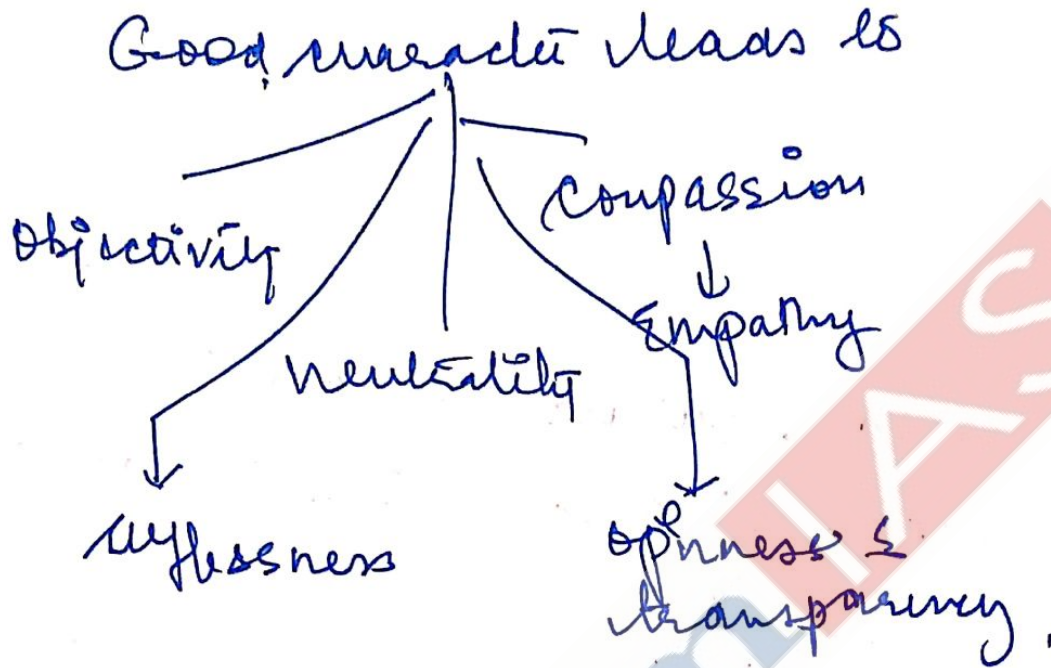 Good character leads to
Objectivity
Compassion
Empathy
Neutrality
selflessness
openness &
transparency.
IAS